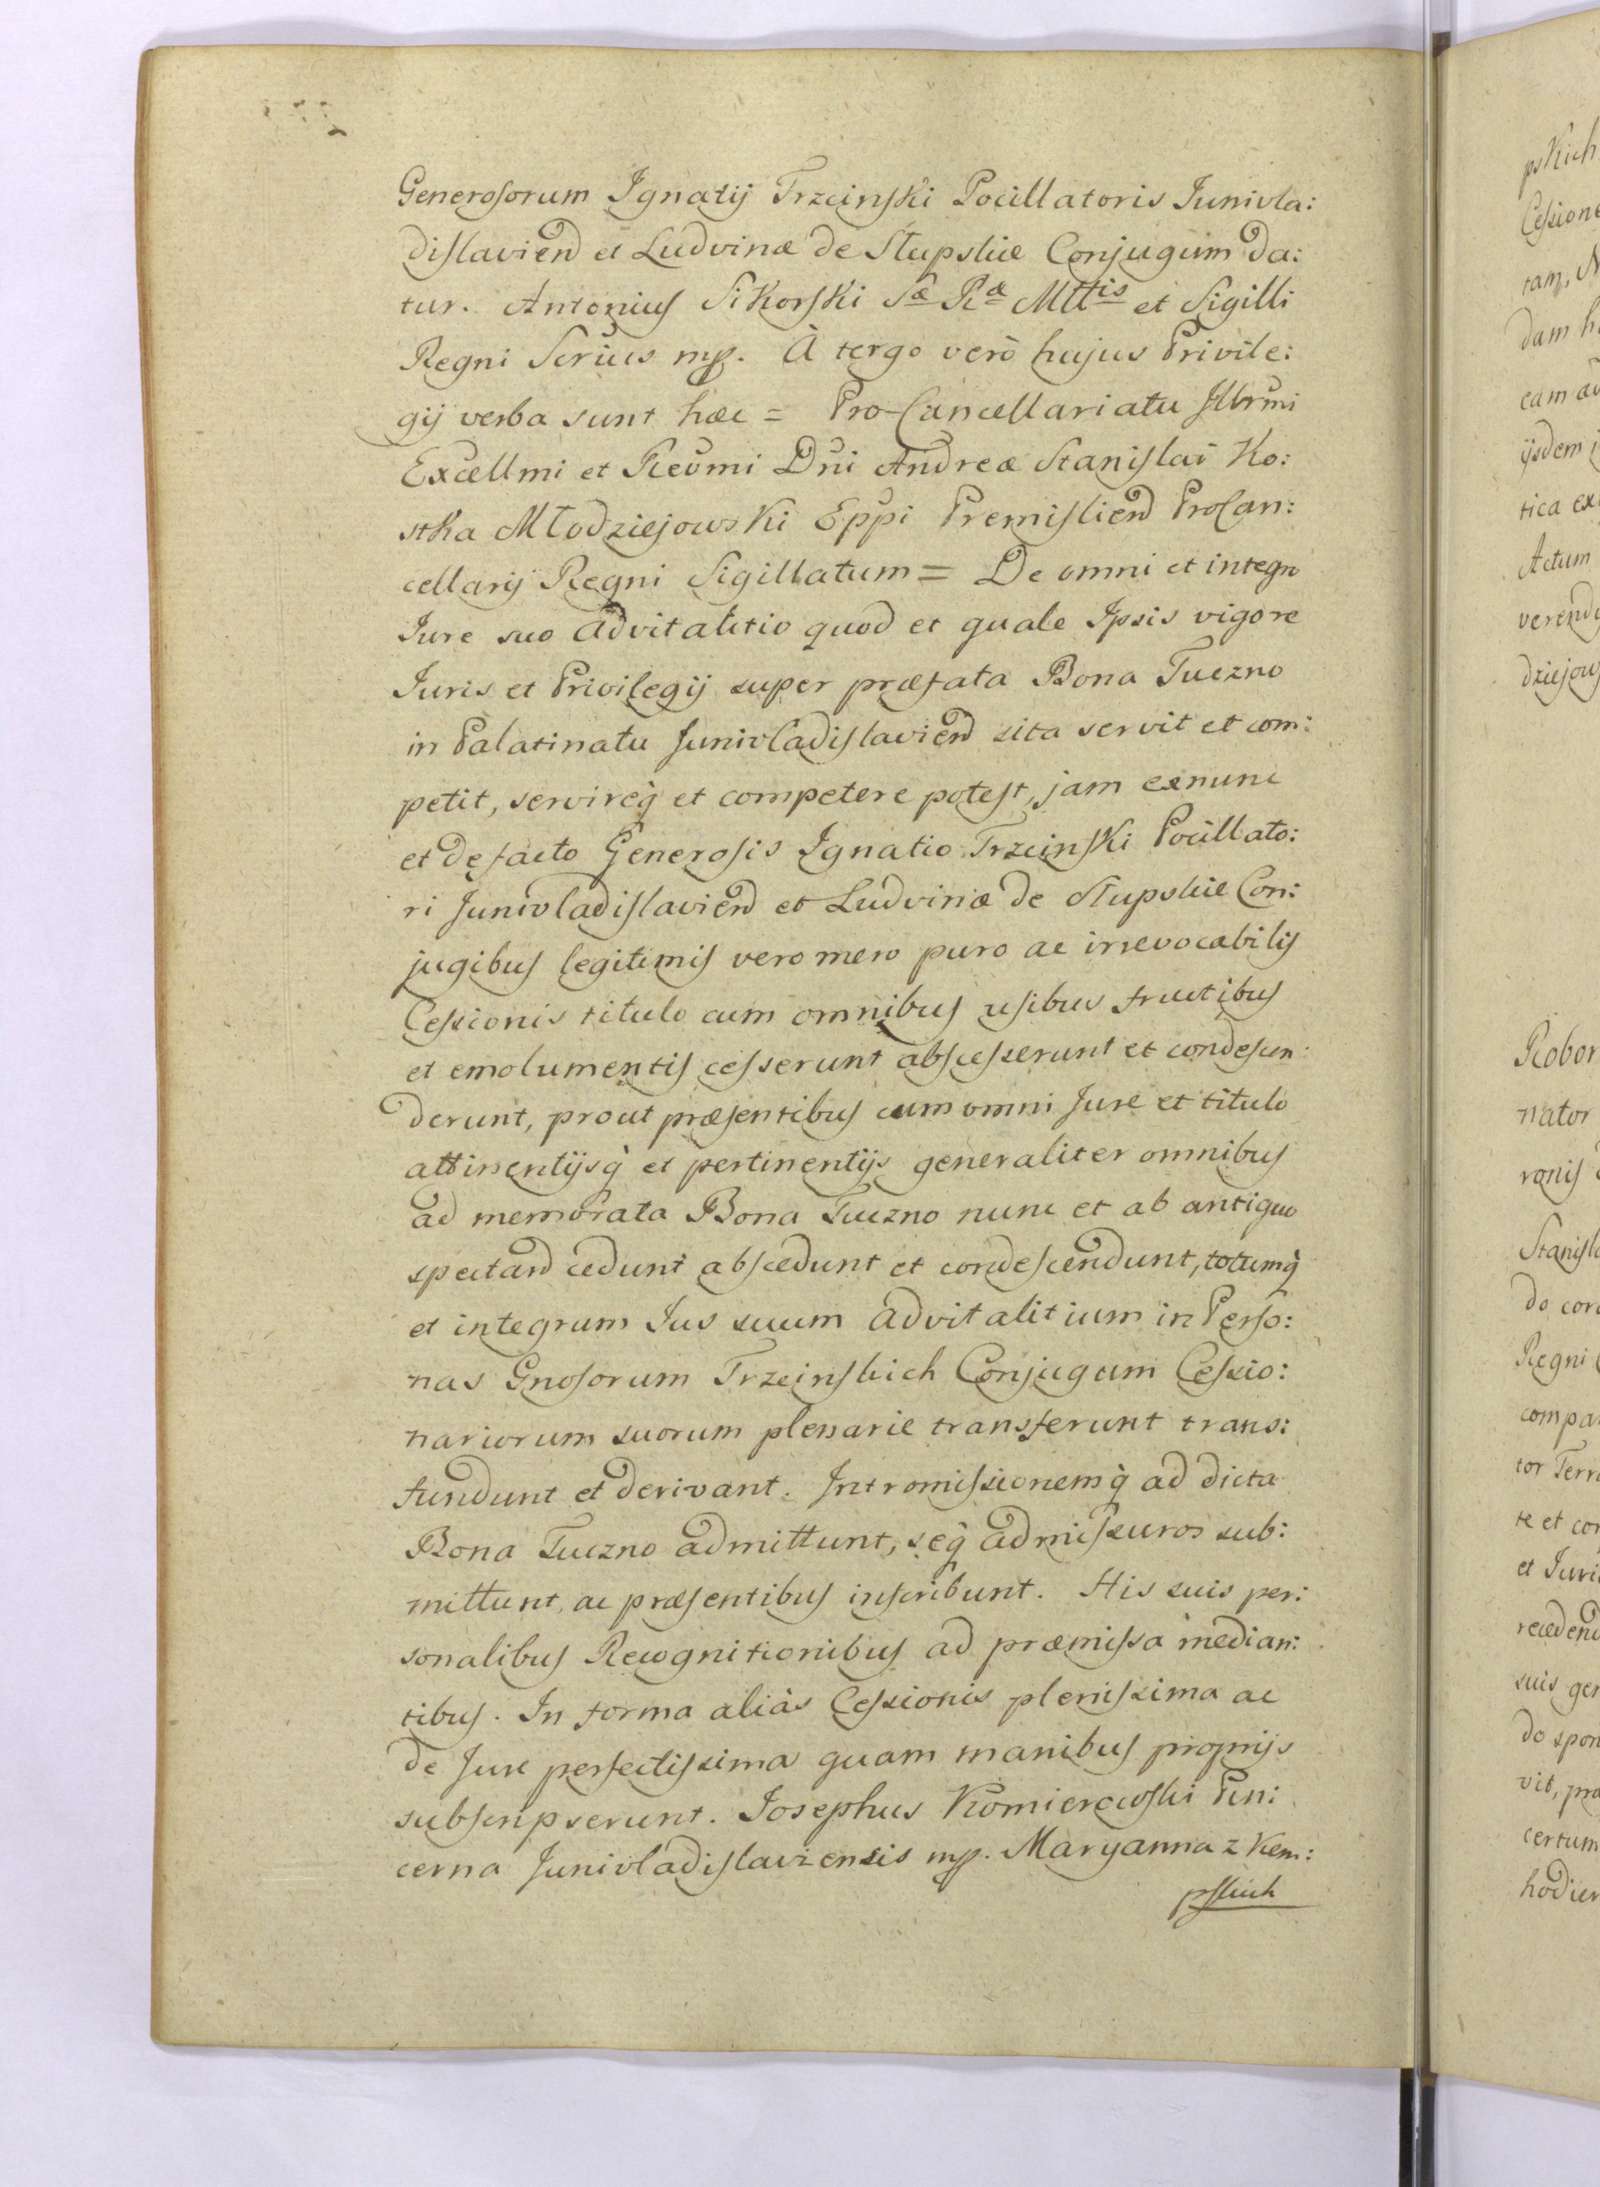 Generosorum Ignatij Trzcinski Pocillatoris Junivla:
dislavien̄ et Ludvinæ de Słupskie Conjugum da:
tur. Antonius Sikorski Sæ Ræ Mttis et Sigilli
Regni Scrius mp. À tergo verò hujus Privile:
gij verba sunt hæc = Pro-Cancellariatu Jllrmi
Excellmi et Revmi Dni Andreæ Stanislai Ko:
stka Młodziejowski Eppi Premislien̄ ProCan:
cellarij Regni Sigillatum = De omni et integro
Jure suo advitalitio quod et quale Jpsis vigore
Juris et Privilegij super præfata Bona Tuczno
in Palatinatu Junivladislavien̄ sita servit et com:
petit, servireq̀ et competere potest, jam exnunc
et defacto Generosis Ignatio Trzcinski Pocillato:
ri Junivladislavien̄ et Ludvinæ de Słupskie Con:
jugibus legitimis vero mero puro ac irrevocabilis
Cessionis titulo cum omnibus usibus fructibus
et emolumentis cesserunt abscesserunt et condescen:
derunt, prout præsentibus cum omni Jure et titulo
attinentijsq̀ et pertinentijs generaliter omnibus
ad memorata Bona Tuczno nunc et ab antiquo
spectan̄ cedunt abscedunt et condescendunt, totumq̀
et integrum Jus suum advitalitium in Perso:
nas Gnosorum Trzcinskich Conjugum Cessio:
nariorum suorum plenarie transferunt trans:
fundunt et derivant. Intromissionemq̀ ad dicta
Bona Tuczno admittunt, seq̀ admissuros sub:
mittunt, ac præsentibus inscribunt. His suis per:
sonalibus Recognitionibus ad præmissa median:
tibus. In forma aliàs Cessionis plenissima ac
de Jure perfectissima quam manibus proprijs
subscripserunt. Josephus Komierowski Pin:
cerna Junivladislaviensis mp. Maryanna z Kem:
pskich
pskich
Cessione
tam,
dam
eam
ijsdem
tica
Actum
verend
dziejow
Robor
nator
ronis
Stanisla
do
Regni
compa
tor Terr
te et
et Juri
recedend
suis
do spon
vit,
certum
hodier